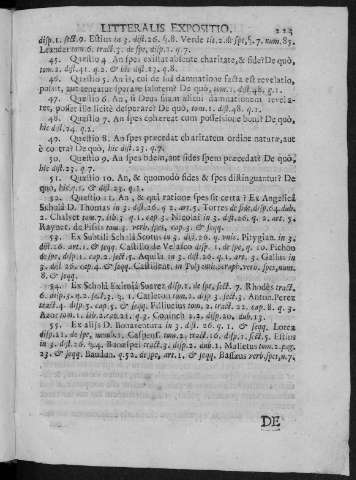 LITTERALIS EXPOSITIO. 223
disp.1. sect.9. Estius in 3. dist.26. §.8. Verde tit.2. de spe, §.7. num.85.
Leander tom.6. tract.3. de spe, disp.1. q.7.
45. Quæstio 4. An spes existat absente charitate, & fide? De quo,
tom.1. dist.41. q.2. & hic dist.23. q.8.
46. Quæstio 5. An is, cui de sua damnatione facta est revelatio,
possit, aut teneatur sperare salutem? De quo, tom.1. dist.48. q.1.
47. Quæstio 6. An, si Deus suam alicui damnationem revela-
ret, posset ille licitè desperare? De quo, tom.1. dist.48. q.2.
48. Quæstio 7. An spes cohæreat cum possessione boni? De quo,
hic dist.24. q.2.
49. Quæstio 8. An spes præcedat charitatem ordine naturæ, aut
è contra? De quò, hic dist.23. q.7.
50. Quæstio 9. An spes fidem, aut fides spem præcedat? De quò,
hic dist.23. q.7.
51. Quæstio 10. An, & quomodo fides & spes distinguantur? De
quo, hic q.1. & dist.23. q.2.
52. Quæstio 11. An, & qui ratione spes sit certa? Ex Angelica
Scholâ D. Thomas in 3. dist.26. q.2. art.5. Torres de fide, disp.64. dub.
2. Chalvet tom.7. lib.3. q.1. cap.3. Nicolai in 3. dist.26. q.2. art.5.
Raynet. de Pisis tom.3. verb. spes, cap.3.
53. Ex Subtili Scholâ Scotus in 3. dist.26. q. vnic. Pitygian. in 3.
dist.26. art.1. & seqq. Castillo de Velasco disp.1. de spe, q.10. Pichon
de spe, disp.1. cap.2. sect.5. Aquila in 3. dist.26. q.1. art.3. Gallus in
3. dist.26. cap.4. & seqq. Castiliat. in
8. & seqq.
54. Ex Scholâ Eximiâ Suarez disp.1. de spe, sect.7. Rhodès tract.
6. disp.3. q.2. sect.3. §.1. Carleton tom.2. disp.3. sect.3. Anton. Perez
tract.4. disp.5. cap.7. & seqq. Filliucius tom.2. tract.22. cap.8. q.3.
Azor tom.1. lib.2. cap.21. q.3. Coninch 2.2. disp.20. dub.13.
55. Ex alijs D. Bonaventura in 3. dist.26. q.1. & seqq. Lorca
disp.12. de spe, memb.1. Caspens. tom.2. tract.16. disp.1. sect.5. Estius
in 3. dist.26. §.4. Banuspei tract.3. disp.2. dub.1. Malletus tom.2. pag.
23. & seqq. Baudun. q.52. de spe, art.1. & seqq. Basseus verb. spes, n.7.
DE